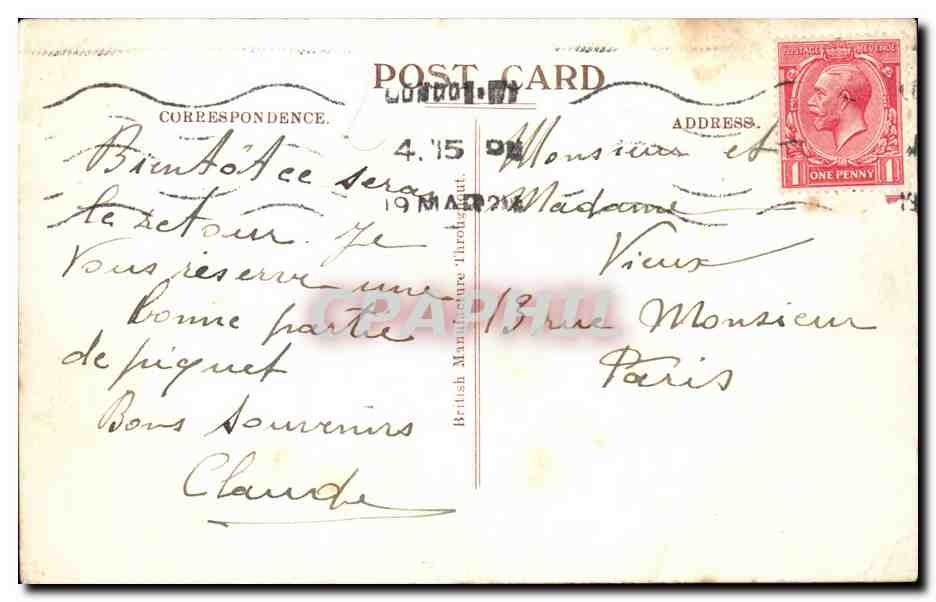 POST CARD
CORRESPONDENCE.
ADDRESS.
POSTAGE REVENUE
1 ONE PENNY 1
4.15 PM
19 MAR
Bientôt ce sera
le retour. Je
vous réserve une
bonne partie
de piquet
Bons souvenirs
Claude
British Manufacture Throughout.
Monsieur et
Madame
Vieux
13 rue Monsieur
Paris
CPAPHIL